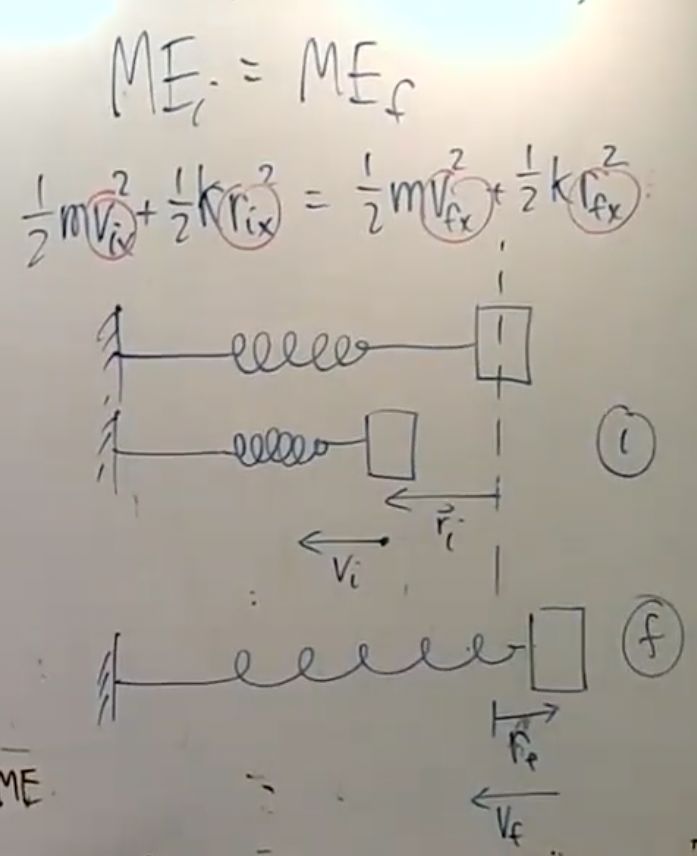 ME_i = ME_f
½mv_ix² + ½kr_ix² = ½mv_fx² + ½kr_fx²
i
r⃗_i
v_i
f
r⃗_f
ME
v_f